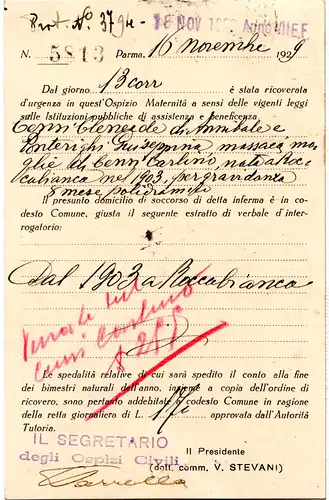 Prot. N° 3794 - 18 NOV 1929 Anno VIII E.F.
N. 5813 Parma, 16 novembre 1929
Dal giorno 13 corr è stata ricoverata
d'urgenza in quest'Ospizio Maternità a sensi delle vigenti leggi
sulle Istituzioni pubbliche di assistenza e beneficenza
Cenni Cleneide di Annibale e
Giuseppina massaia mo
glie di Cenni Carlino, nata a Roc
cabianca nel 1903, per gravidanza
8 mese
Il presunto domicilio di soccorso di detta inferma è in co-
desto Comune, giusta il seguente estratto di verbale d'inter-
rogatorio:
Dal 1903 a Roccabianca
Cenni
Le spedalità relative di cui sarà spedito il conto alla fine
dei bimestri naturali dell'anno, insieme a copia dell'ordine di
ricovero, sono pertanto addebitate a codesto Comune in ragione
della retta giornaliera di L. 17 approvata dall'Autorità
Tutoria.
IL SEGRETARIO
degli Ospizi Civili
Il Presidente
(dott. comm. V. STEVANI)